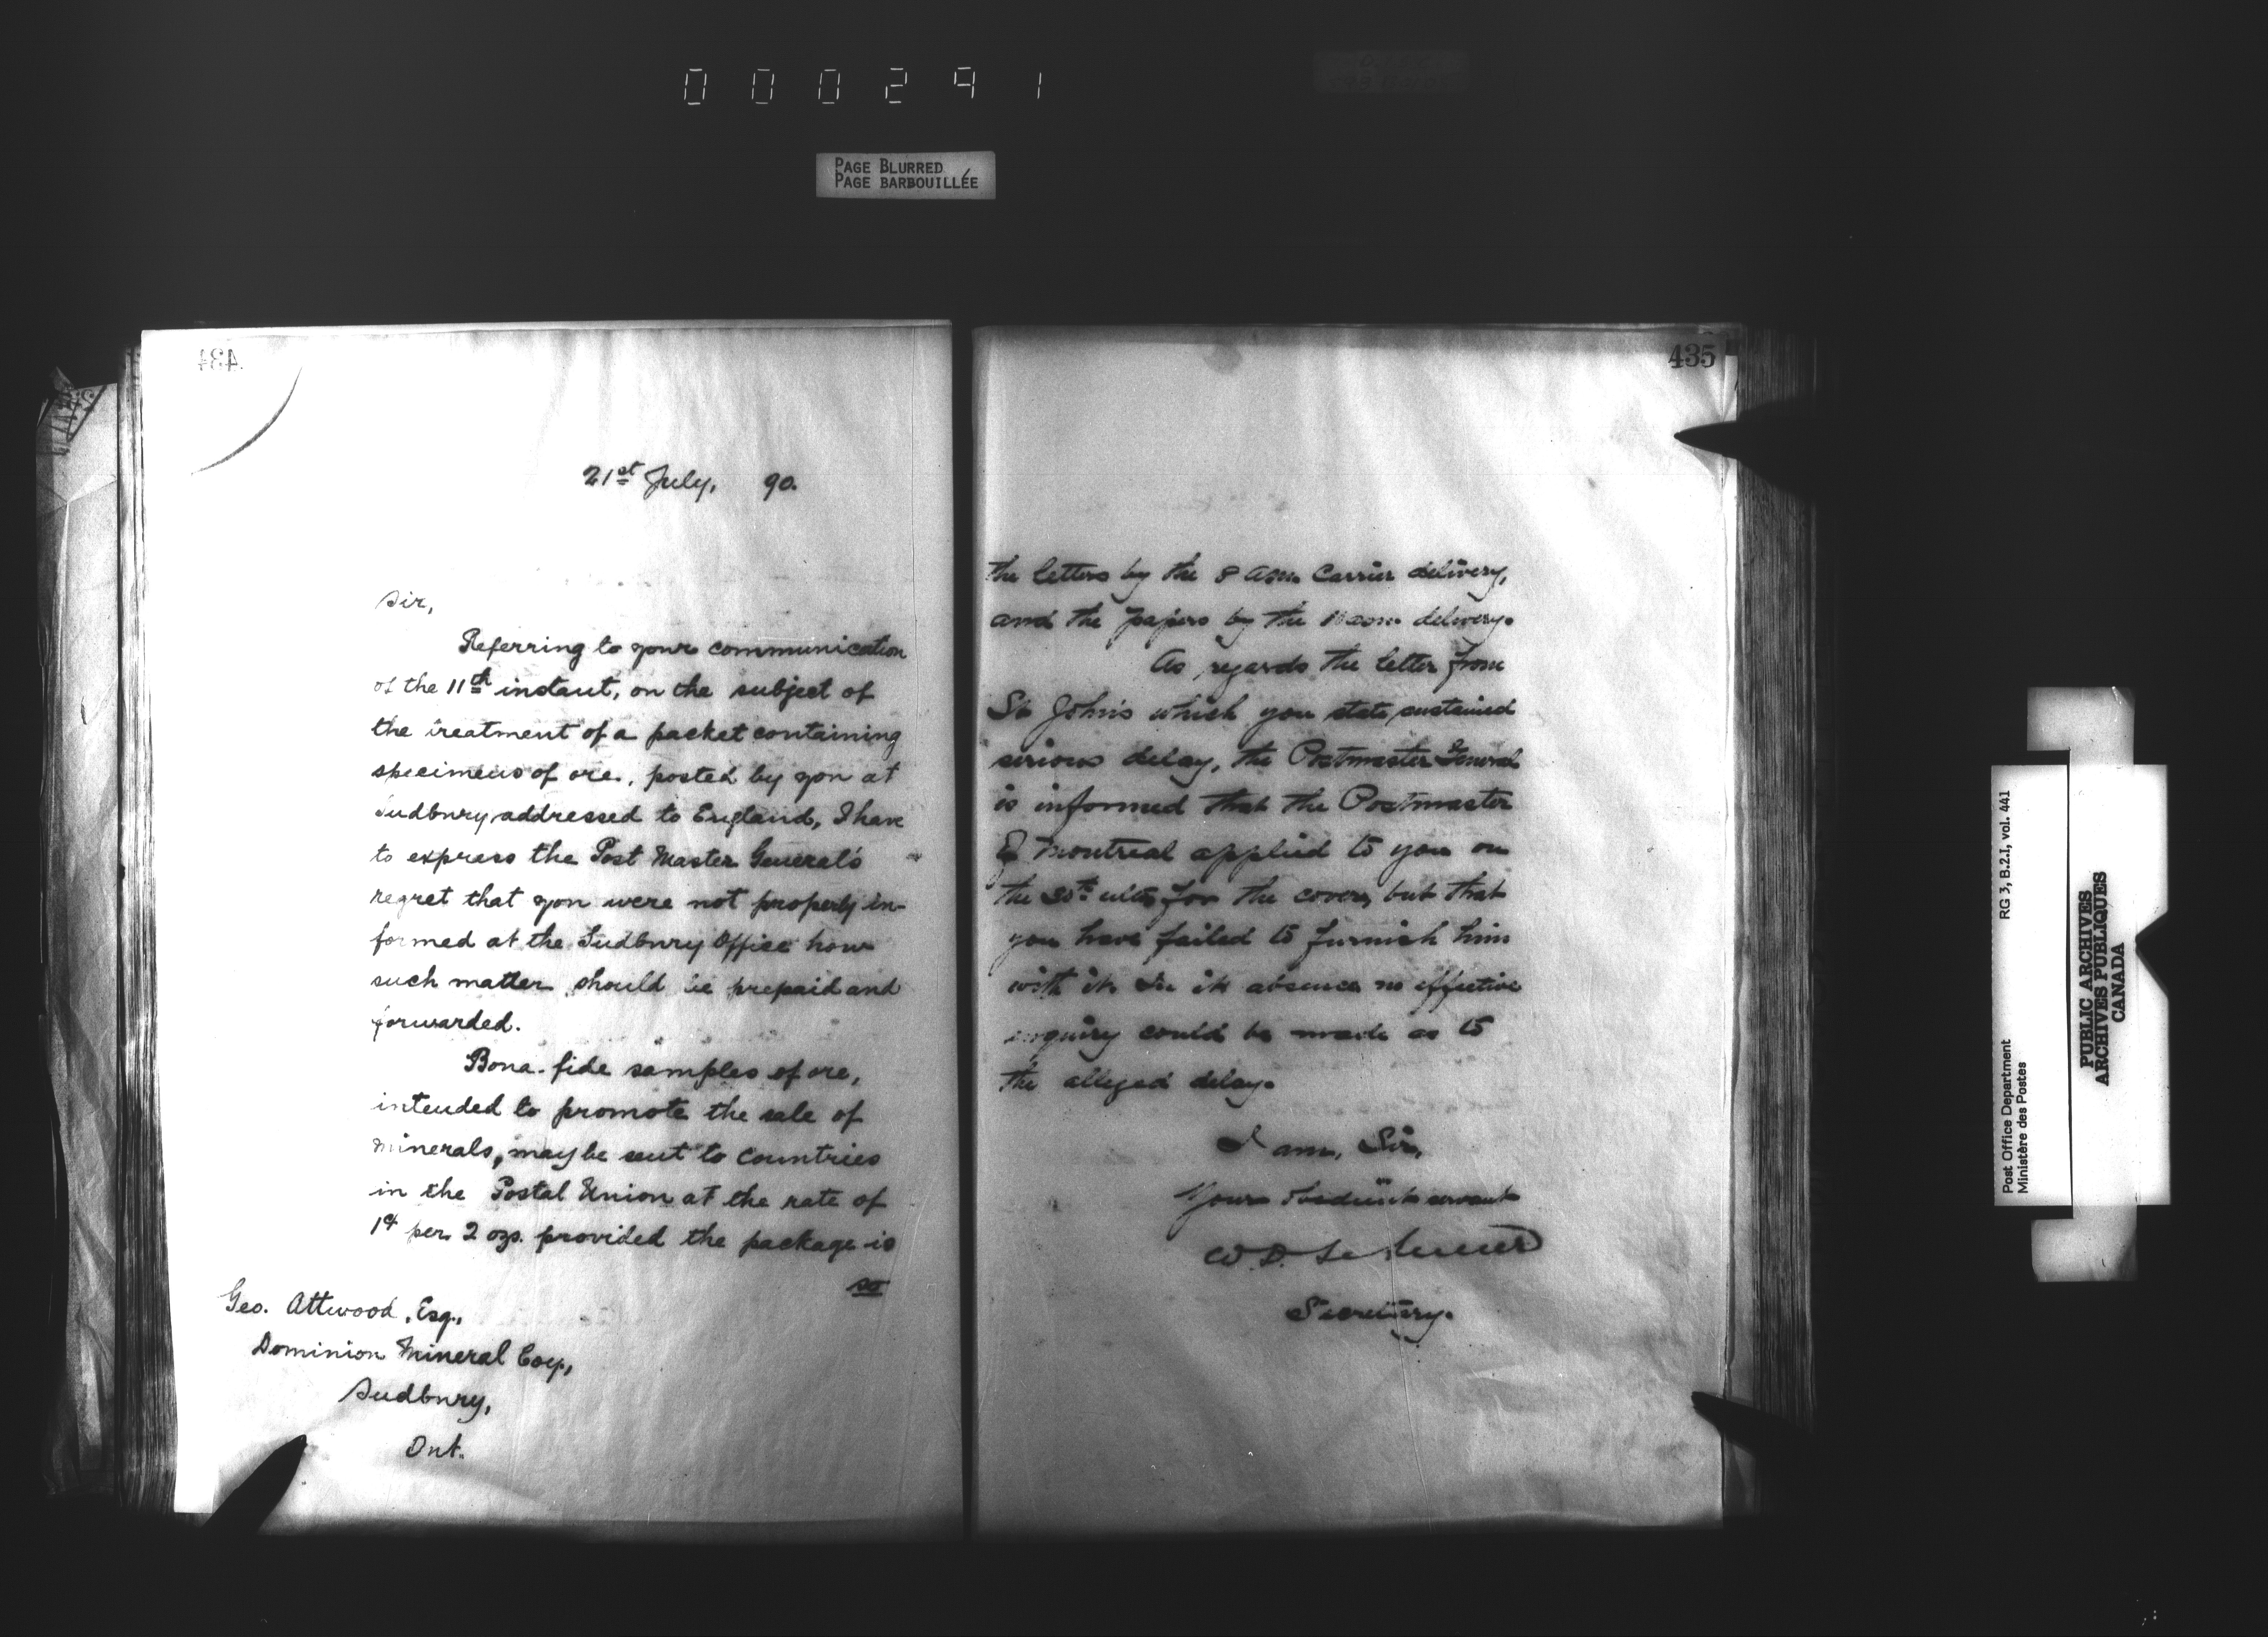 000291
PAGE BLURRED
PAGE BARBOUILLÉE
434
21st July, 90.
Sir,
Referring to your communication
of the 11th instant, on the subject of
the treatment of a packet containing
specimens of ore, posted by you at
Sudbury addressed to England, I have
to express the Post Master General's
regret that you were not properly in-
formed at the Sudbury Office how
such matter should be prepaid and
forwarded.
Bona-fide samples of ore,
intended to promote the sale of
minerals, may be sent to countries
in the Postal Union at the rate of
1¢ per 2 ozs. provided the package is
so
Geo. Attwood, Esq.,
Dominion Mineral Coy.,
Sudbury,
Ont.
435
the letters by the 8 a.m. Carrier delivery,
and the papers by the 11 a.m. delivery.
As regards the letter from
St John's which you state sustained
serious delay, the Postmaster General
is informed that the Postmaster
of Montreal applied to you on
the 30th ulto for the cover, but that
you have failed to furnish him
with it. In its absence no effective
enquiry could be made as to
the alleged delay.
I am, Sir,
Your obedient servant
W. D. LeSueur
Secretary.
Post Office Department
Ministère des Postes
RG 3, B.2.I, vol. 441
PUBLIC ARCHIVES
ARCHIVES PUBLIQUES
CANADA